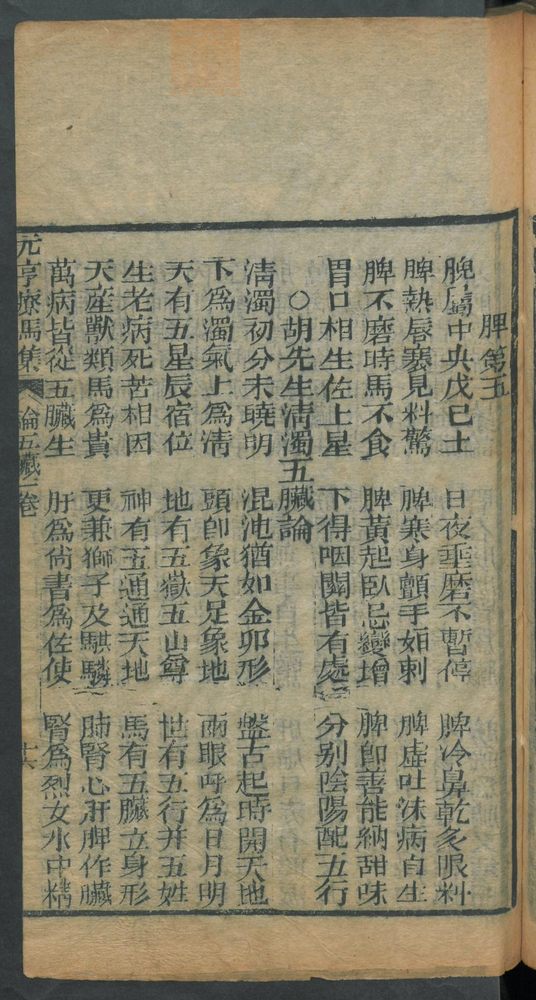 脾第五
脾屬中央戊巳土　日夜垂磨不暫停　脾冷鼻乾多眼料
脾熱唇蹇見料驚　脾寒身顫手如刺　脾虛吐沫病自生
脾不磨時馬不食　脾黃起臥忌變增　脾即善能納甜味
胃口相生佐上星　下得咽關皆有處　分别陰陽配五行
○胡先生清濁五臟論
清濁初分未曉明　混沌猶如金卵形　盤古起時開天地
下爲濁氣上爲清　頭卽象天足象地　兩眼呼爲日月明
天有五星辰宿位　地有五嶽五山尊　世有五行并五姓
生老病死苦相因　神有五通通天地　馬有五臟立身形
天産獸類馬爲貴　更兼獅子及騏驎　肺腎心肝脾作臟
萬病皆從五臟生　肝爲尚書爲佐使　腎爲烈女水中精
元亨療馬集　論五臟一卷　十六